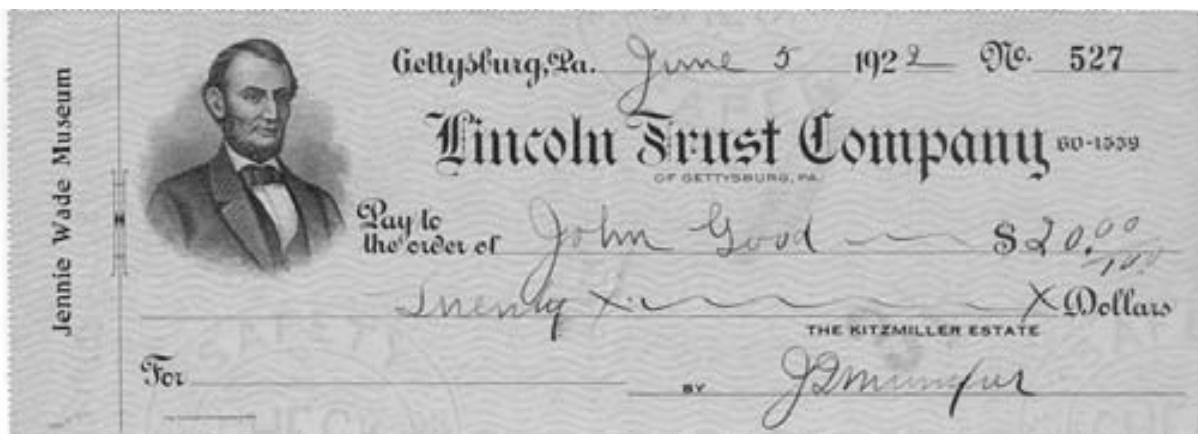 Jennie Wade Museum
Gettysburg, Pa. June 5 1922 No. 527
Lincoln Trust Company 60-1559
OF GETTYSBURG, PA.
Pay to
the order of John Good $20.00/100
Twenty X X Dollars
THE KITZMILLER ESTATE
For BY
SAFETY
CHECK